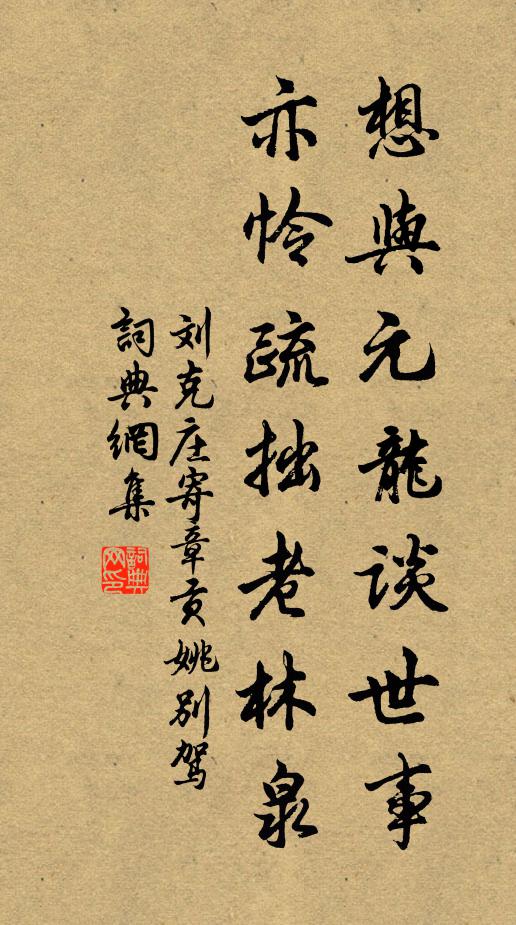 想與元龍談世事
亦怜疏拙老林泉
刘克庄寄章贡姚别驾
詞典網集
詞典
网印